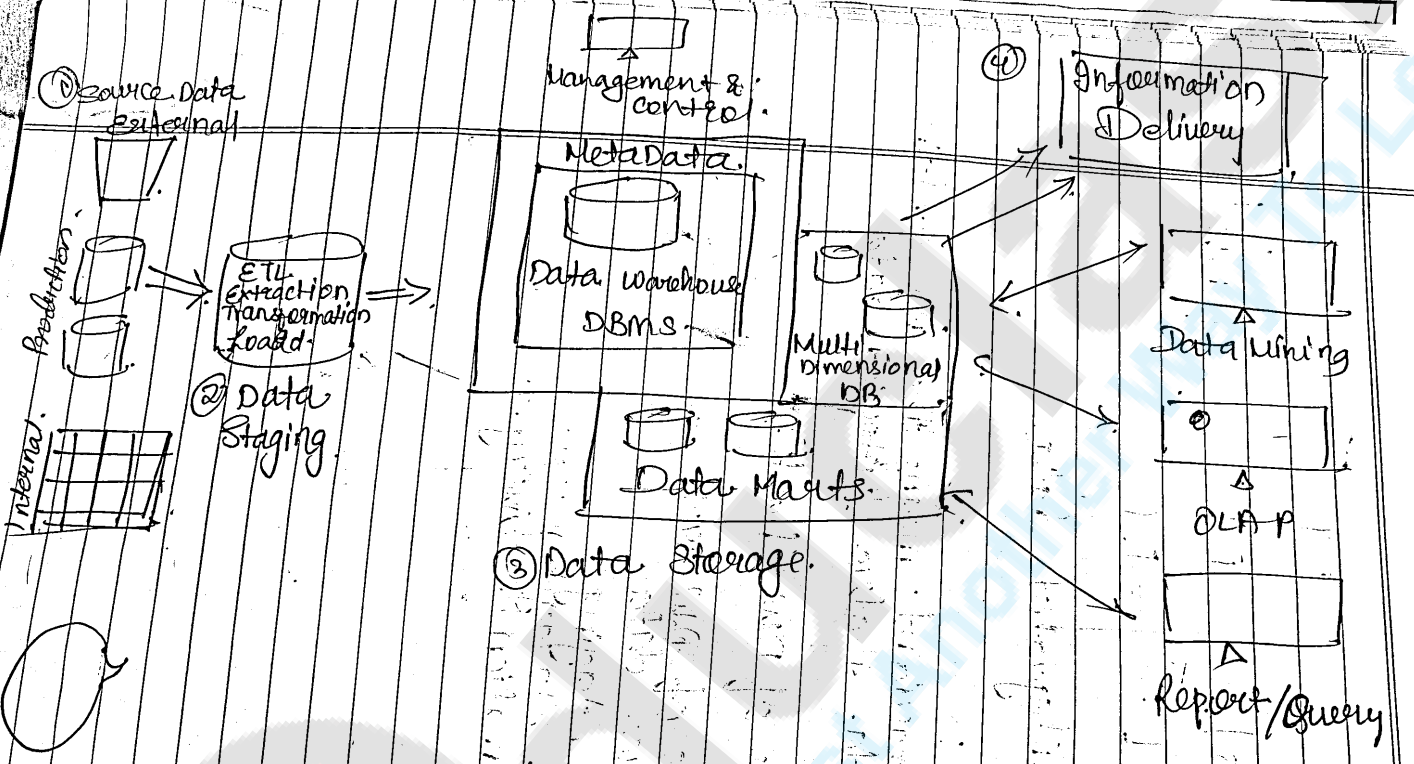 ① Source Data
External
Production.
Internal.
ETL
Extraction
Transformation
&
Load.
② Data
Staging.
Management &
control.
MetaData.
Data Warehouse
DBMS.
Multi-
Dimensional
DB.
Data Marts.
③ Data Storage.
④ Information
Delivery
Data Mining
OLAP
Report/Query
Another Way To